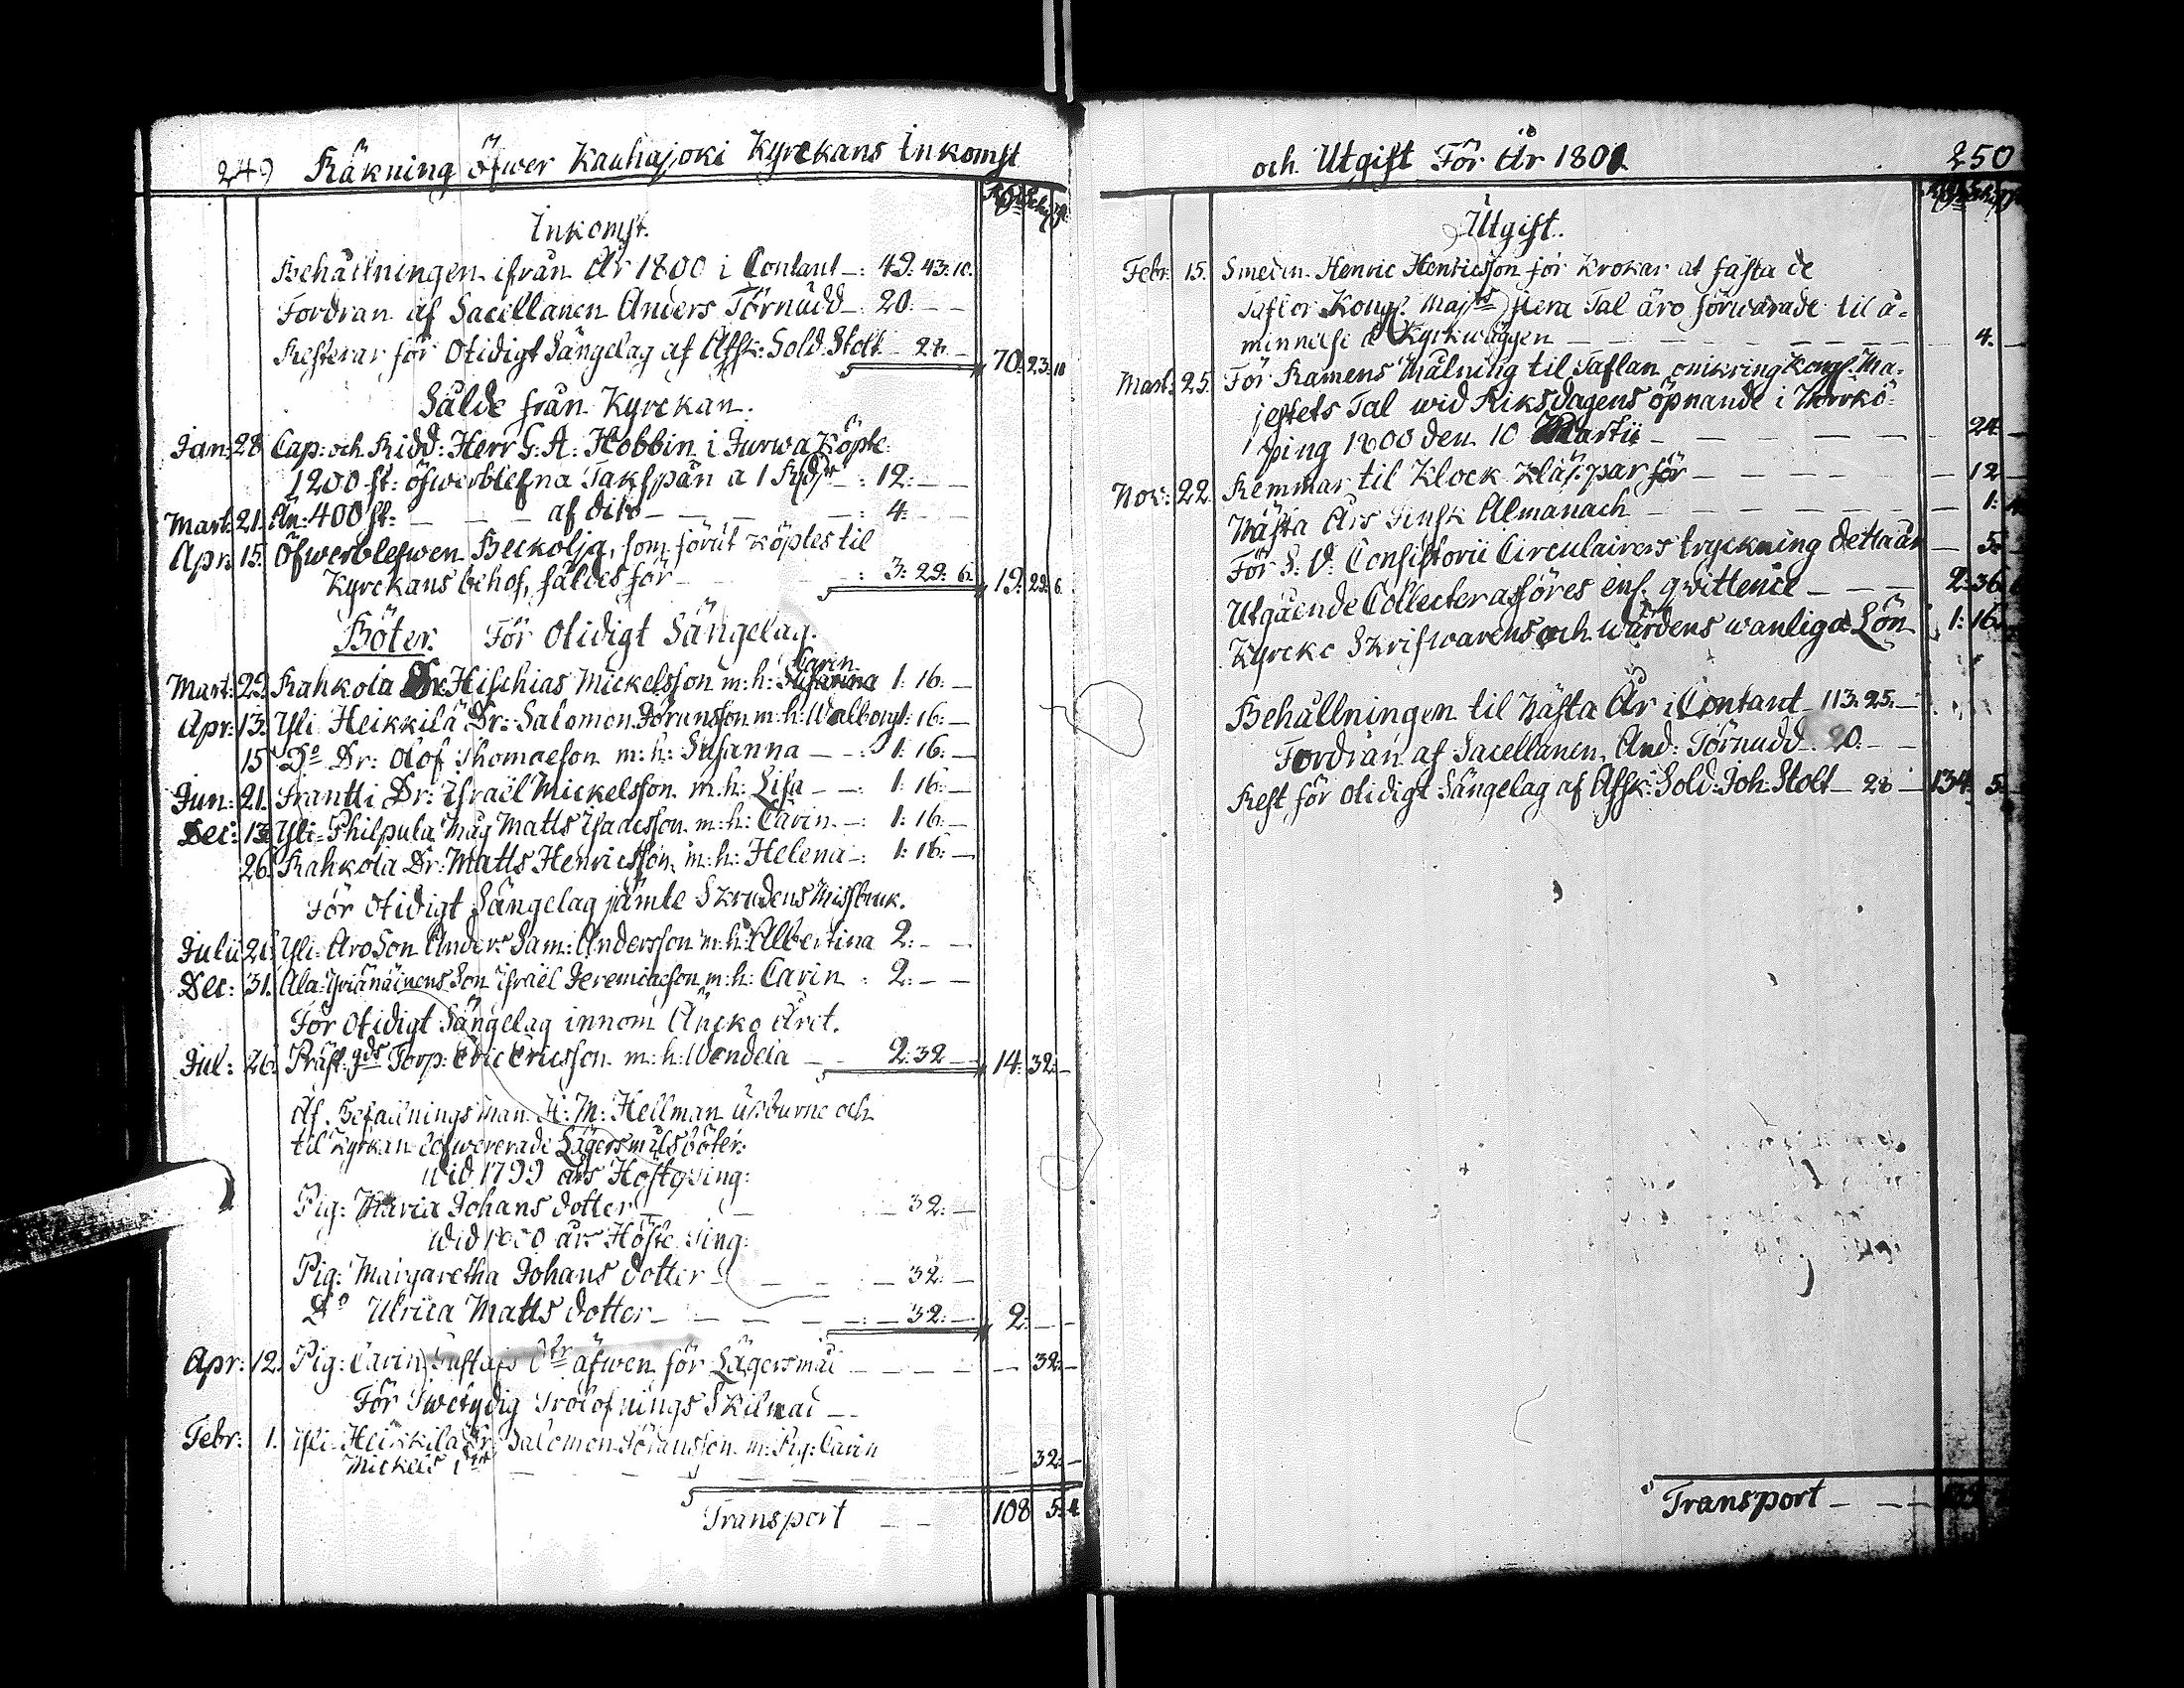 249 Räkning öfwer Kauhajoki Kyrckans Inkomst
Inkomst.
Behållningen ifrån År 1800 i Contant —: 49: 43: 10.
Fordran af Sacellanen Anders Törnudd —: 20: — —
Resterar för Otidigt Sängelag af Afsk: Sold: Stolt — 28: — 70: 23: 10
Sålde från Kyrckan.
Jan: 28 Cap: och Ridd: Herr G: A: Hobbin i Jurwa Köpte
1200 st: öfwerblefna Takspån a 1 Rd —: 12: — —
Mart: 21. Än: 400 st: — — — af dito — — —: 4: — —
Apr: 15. Öfwerblefwen Beckolja, som förut köptes til
Kyrckans behof, såldes för — —: 3: 29: 6. 19: 29: 6.
Böter. För Otidigt Sängelag.
Mart: 29. Rahkola Dr: Hischias Mickelsson m: h: Carin 1: 16: —
Apr: 13. Yli Heikkilä Dr: Salomon Göransson m: h: Walborg 1: 16: —
15 Do Dr: Olof Thomaeson m: h: Susanna — —: 1: 16: —
Jun: 21. Frantti Dr: Israël Mickelsson m: h: Lisa — —: 1: 16: —
Dec: 13. Yli-Philpula Måg Matts Isacsson m: h: Carin —: 1: 16: —
26. Rahkola Dr: Matts Henricsson m: h: Helena —: 1: 16: —
För Otidigt Sängelag jämte Skrudens Missbruk.
Julii 21. Yli-Aro Son Anders Sam: Andersson m: h: Albertina 2: — —
Dec: 31. Ala- Son Israël Jeremiaeson m: h: Carin : 2: — —
För Otidigt Sängelag innom Äncko Året.
Jul: 26. Präst-gds Torp: Eric Ericsson m: h: Wendela — — 2: 32 — 14: 32: —
Af Befallningsman H: M: Hellman upburne och
til Kyrkan lefwererade Lägersmålsböter:
wid 1799 års Höstting:
Pig: Maria Johans dotter — — — 32: —
Wid 1800 års Höste Ting:
Pig: Margaretha Johans dotter — — — — 32: —
Do Ulrica Matts dotter — — — — — 32: — 2: — —
Apr: 12. Pig: Carin Gustafs dtr äfwen för Lägersmål — — — — — 32: —
För Twetydig Trolofnings Skilnad — —
Febr: 1. Yli-Heikkilä Dr: Salomon Göransson m: Pig: Carin
Mickels dtr — — — — — 32: —
Transport — — 108 5: 4
och Utgift För År 1801 250
Utgift.
Febr: 15. Smeden Henric Henricsson för Krokar at fästa de
Taflor Kongl. Majts flera Tal äro förwarade til å-
minnelse å Kyrkwäggen — — — — — — — — 4. —
Mart: 25. För Ramens Målning til Taflan omkring Kongl. Ma-
jestets Tal wid Riksdagens öpnande i Norrkö-
ping 1800 den 10 Martii — — — — — 24. —
Nov: 22. Remmar til Klock Kläppar för — — — — — 12 —
Nästa Års Finsk Almanach — — — — — — — 1:
För S: V: Consistorii Circulairers tryckning detta år — 5:
Utgående Collecter afföres enl. qvittence — — — 2: 36:
Kyrcko Skrifwarens och Wärdens wanliga Lön 1: 16.
Behållningen til Nästa År i Contant — 113: 25: —
Fordran af Sacellanen And: Törnudd 20: — —
Rest för otidigt Sängelag af Afsk: Sold: Joh: Stolt — 28 — 134: 5:
Transport — — —